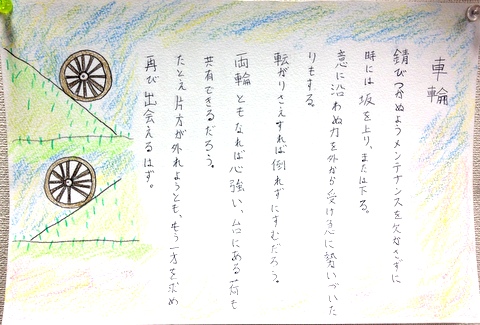 車輪
錆びつかぬようメンテナンスを欠かさずに
時には坂を上り、または下る。
意に沿わぬ力を外から受け急に勢いづいた
りもする。
転がりさえすれば倒れずにすむだろう。
両輪ともなれば心強い、台にある荷も
共有できるだろう。
たとえ片方が外れようとも、もう一方を求め
再び出会えるはず。